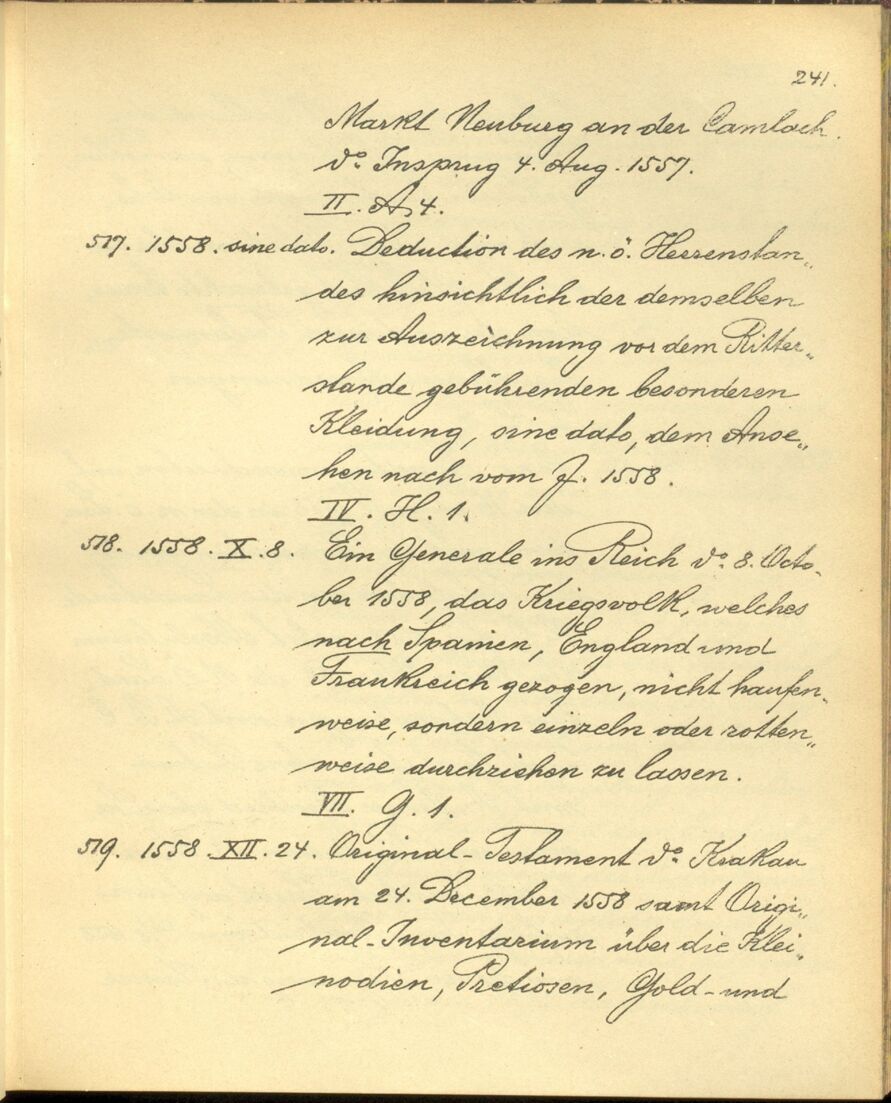 241.
Markt Neuburg an der Camlach.
d⁰ Insprug 4. Aug. 1557.
II. A 4.
517. 1558. sine dato. Deduction des n. ö. Herrenstan„
des hinsichtlich der demselben
zur Auszeichnung vor dem Ritter„
stande gebührenden besonderen
Kleidung, sine dato, dem Anse„
hen nach vom J. 1558.
IV. H. 1.
518. 1558. X. 8. Ein Generale ins Reich d⁰ 8. Octo-
ber 1558, das Kriegsvolk, welches
nach Spanien, England und
Frankreich gezogen, nicht haufen-
weise, sondern einzeln oder rotten„
weise durchziehen zu lassen.
VII. G. 1.
519. 1558. XII. 24. Original-Testament d⁰ Krakau
am 24. December 1558 samt Origi„
nal-Inventarium über die Klei„
nodien, Pretiosen, Gold- und